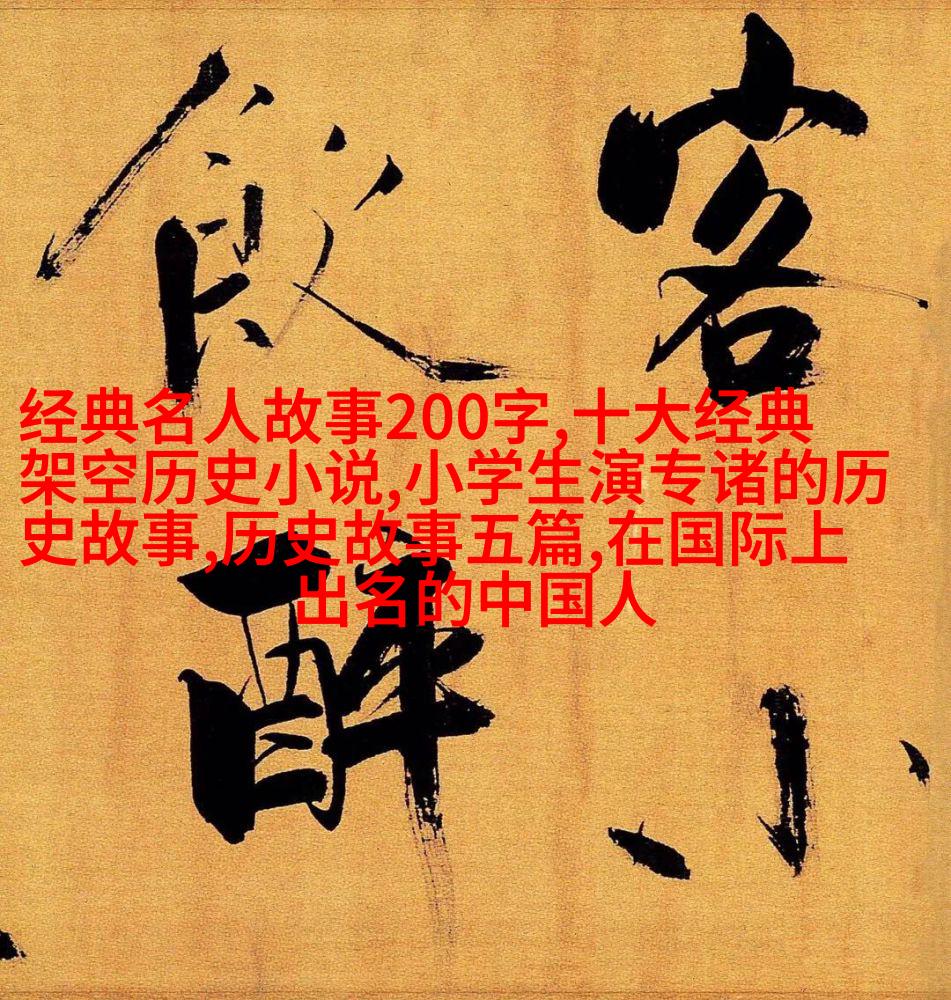 客小
飲醉
经典名人故事200字,十大经典
架空历史小说,小学生演专诸的历
史故事,历史故事五篇,在国际上
出名的中国人